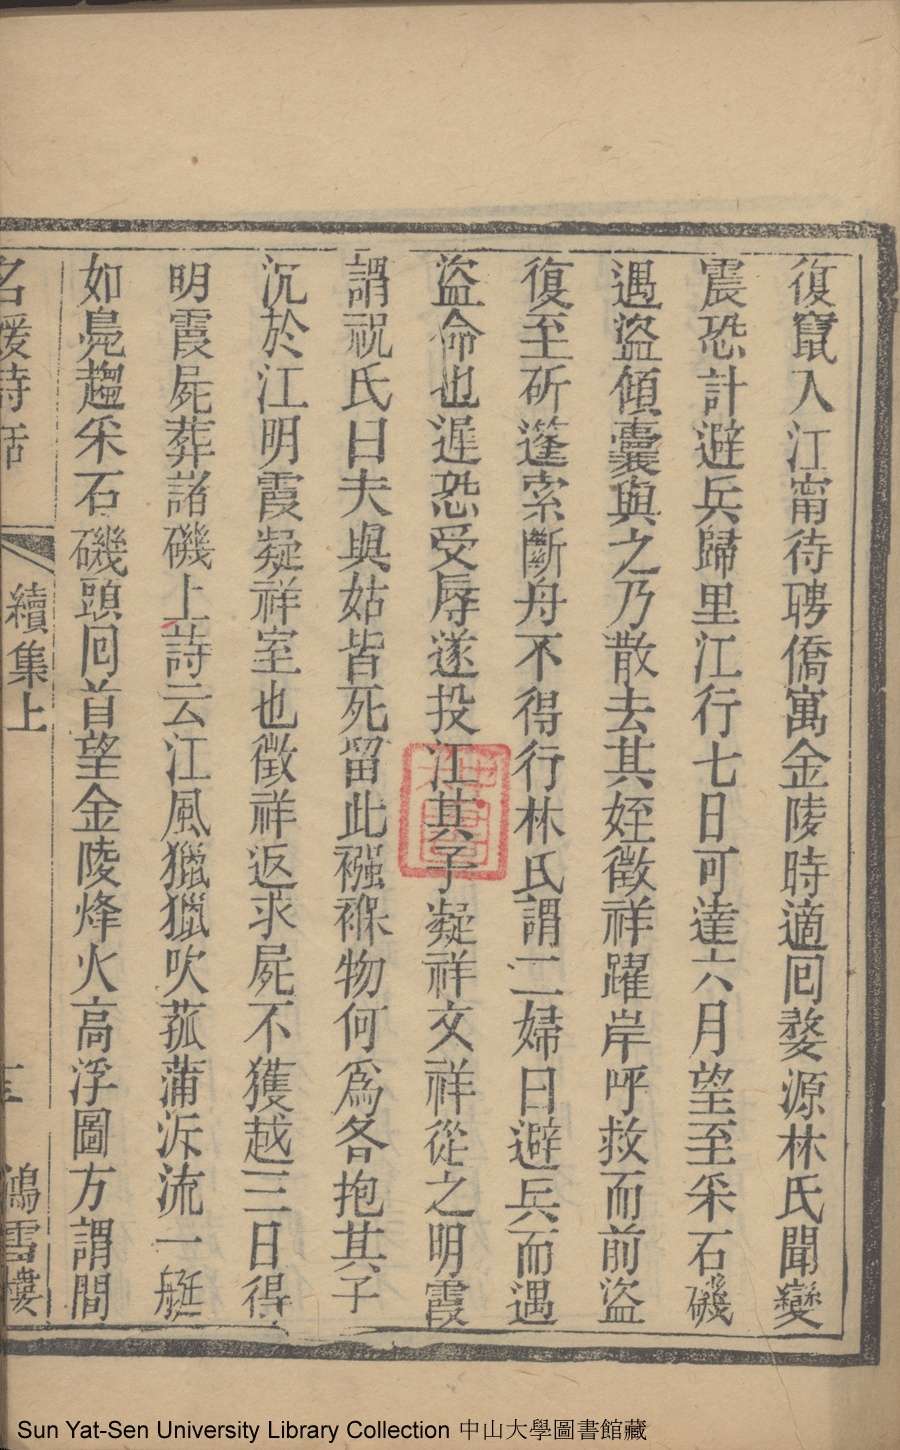 復竄入江甯待聘僑寓金陵時適回婺源林氏聞變
震恐計避兵歸里江行七日可達六月望至采石磯
遇盜傾囊與之乃散去其姪徵祥躍岸呼救而前盜
復至斫篷索斷舟不得行林氏謂二婦曰避兵而遇
盜命也遲恐受辱遂投江其子凝祥文祥從之明霞
謂祝氏曰夫與姑皆死留此襁褓物何爲各抱其子
沉於江明霞凝祥室也徵祥返求屍不獲越三日得
明霞屍葬諸磯上詩云江風獵獵吹菰蒲泝流一艇
如鳧趨采石磯頭回首望金陵烽火高浮圖方謂間
名媛詩話 續集上 鴻雪樓
Sun Yat-Sen University Library Collection 中山大學圖書館藏